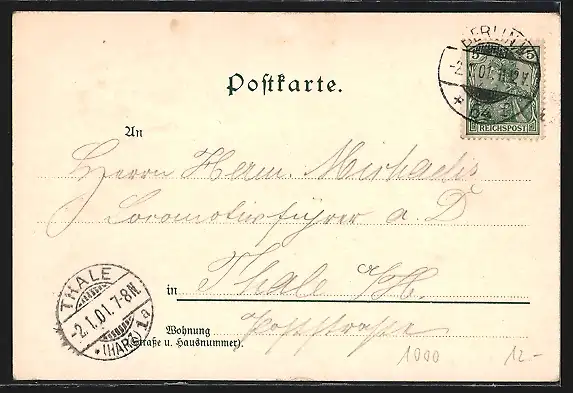 Postkarte.
BERLIN
-2.1.01.11-12V.
54
5 5
REICHSPOST
An
Herrn Herm. Michaelis
Locomotivführer a. D
in Thale a/H.
THALE
-2.1.01.7-8N.
(HARZ) 1a
Wohnung Poststraße
(Straße u. Hausnummer).
1000 12-